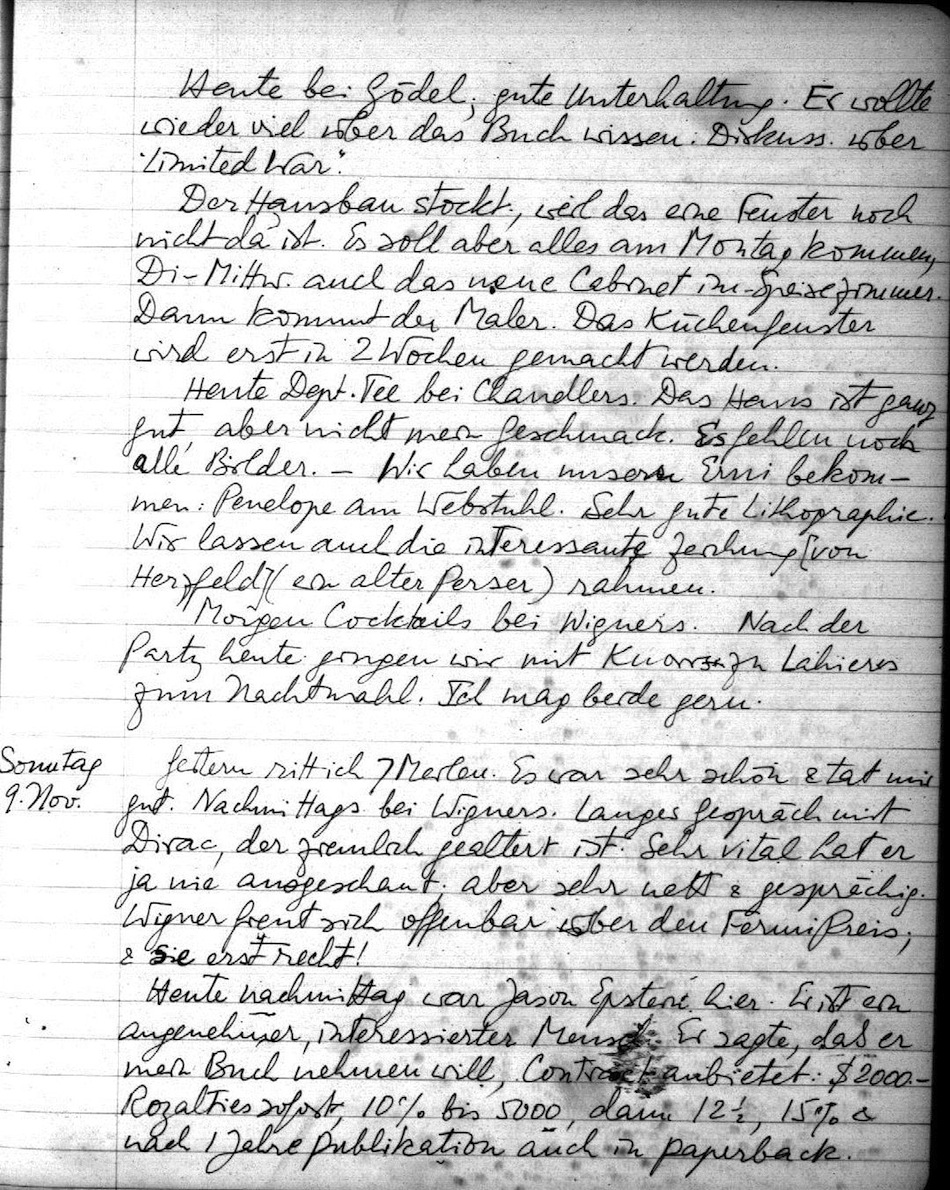 Heute bei Gödel, gute Unterhaltung. Er wollte
wieder viel über das Buch wissen. Diskuss. über
"Limited War".
Der Hausbau stockt, weil das eine Fenster noch
nicht da ist. Es soll aber alles am Montag kommen,
Di-Mittw. auch das neue Cabinet im Speisezimmer.
Dann kommt der Maler. Das Küchenfenster
wird erst in 2 Wochen gemacht werden.
Heute Dept. Tee bei Chandlers. Das Haus ist ganz
gut, aber nicht mein Geschmack. Es fehlen noch
alle Bilder. – Wir haben unseren Erni bekom-
men: Penelope am Webstuhl. Sehr gute Lithographie.
Wir lassen auch die interessante Zeichnung [von
Herzfeld] (ein alter Perser) rahmen.
Morgen Cocktails bei Wigners. Nach der
Party heute gingen wir mit zu Lahieres
zum Nachtmahl. Ich mag beide gern.
Sonntag
9. Nov.
Gestern ritt ich 7 Meilen. Es war sehr schön & tat mir
gut. Nachmittags bei Wigners. Langes Gespräch mit
Dirac, der ziemlich gealtert ist. Sehr vital hat er
ja nie ausgeschaut, aber sehr nett & gesprächig.
Wigner freut sich offenbar über den Fermi Preis,
& sie erst recht!
Heute nachmittag war Jason Epstein hier. Er ist ein
angenehmer, interessierter Mensch. Er sagte, daß er
mein Buch nehmen will, Contract anbietet: $2000.–
Royalties sofort, 10% bis 5000, dann 12½, 15% &
nach 1 Jahre Publikation auch in paperback.